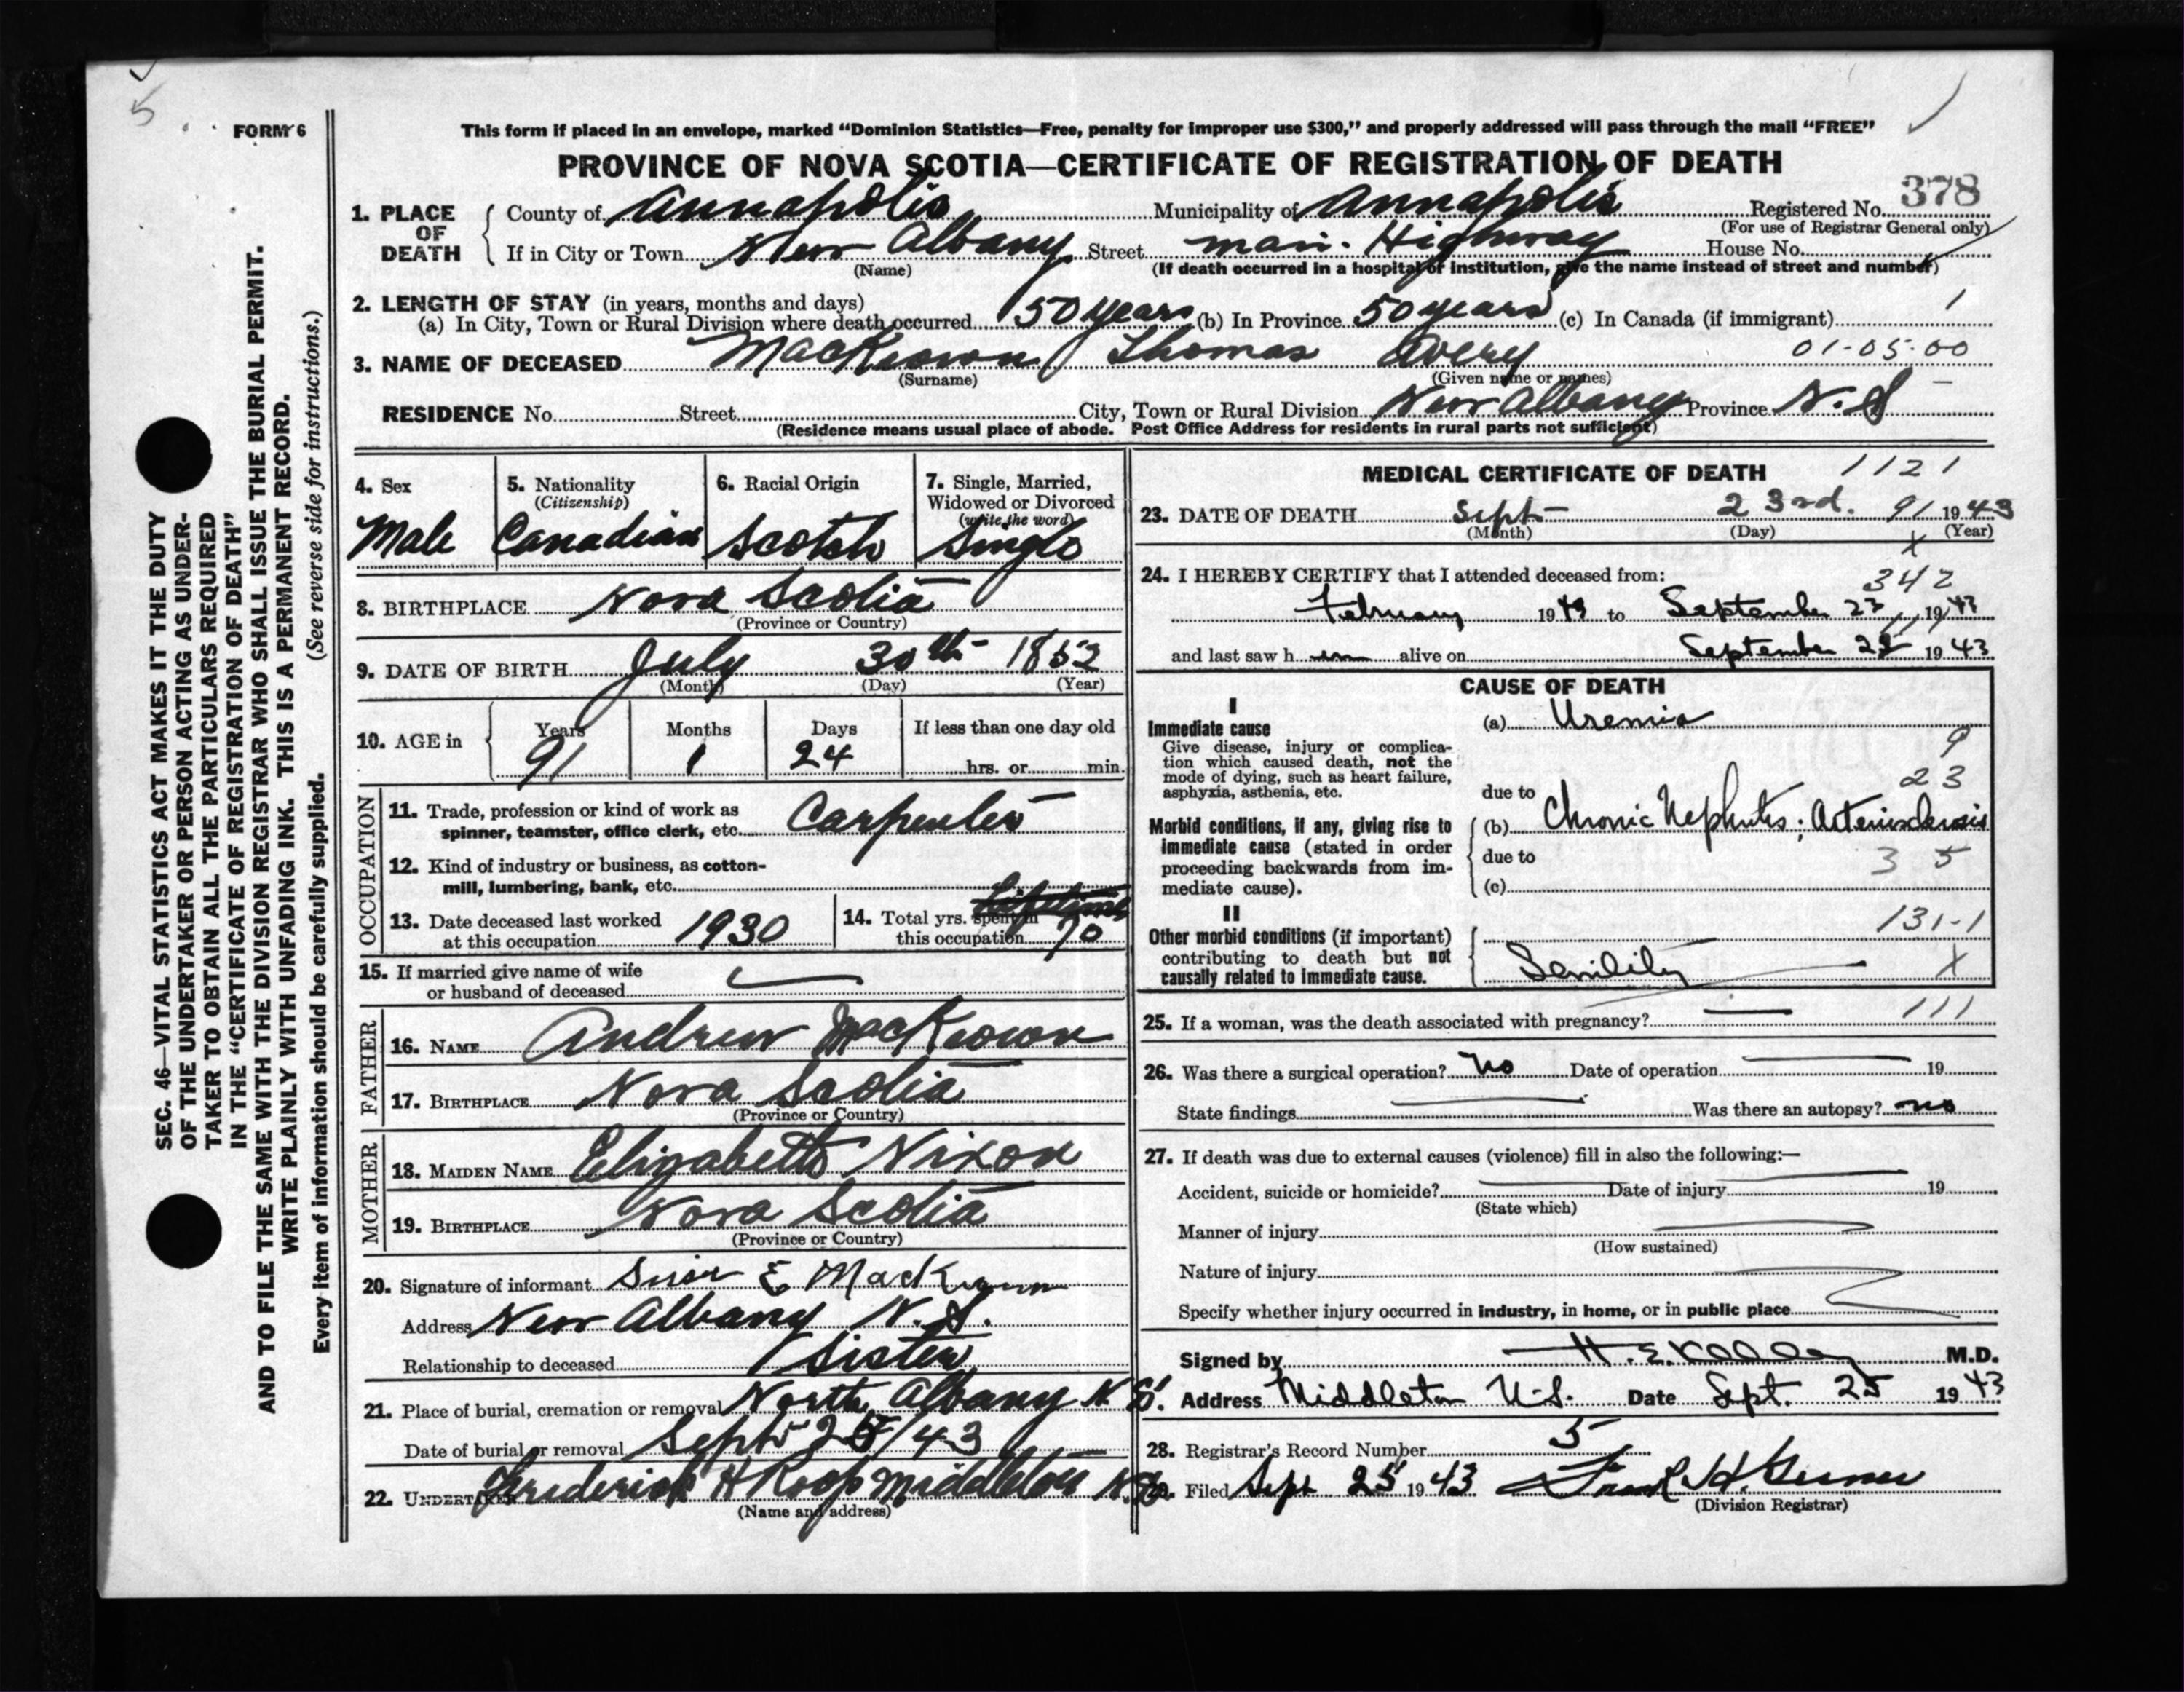 5
FORM 6
This form if placed in an envelope, marked “Dominion Statistics—Free, penalty for improper use $300,” and properly addressed will pass through the mail “FREE”
PROVINCE OF NOVA SCOTIA—CERTIFICATE OF REGISTRATION OF DEATH
378
1. PLACE OF DEATH { County of Annapolis Municipality of Annapolis Registered No.
(For use of Registrar General only)
If in City or Town New Albany Street Main Highway House No.
(Name) (If death occurred in a hospital or institution, give the name instead of street and number)
2. LENGTH OF STAY (in years, months and days)
(a) In City, Town or Rural Division where death occurred 50 years (b) In Province 50 years (c) In Canada (if immigrant) 1
3. NAME OF DECEASED MacKeown Thomas Avery 01-05-00
(Surname) (Given name or names)
RESIDENCE No. Street City, Town or Rural Division New Albany Province N.S
(Residence means usual place of abode. Post Office Address for residents in rural parts not sufficient)
4. Sex Male
5. Nationality (Citizenship) Canadian
6. Racial Origin Scotch
7. Single, Married, Widowed or Divorced (write the word) Single
8. BIRTHPLACE Nova Scotia
(Province or Country)
9. DATE OF BIRTH July 30th 1852
(Month) (Day) (Year)
10. AGE in { Years 91 Months 1 Days 24 If less than one day old
hrs. or min.
OCCUPATION
11. Trade, profession or kind of work as
spinner, teamster, office clerk, etc. Carpenter
12. Kind of industry or business, as cotton-
mill, lumbering, bank, etc.
13. Date deceased last worked
at this occupation 1930
14. Total yrs. spent in Lifetime
this occupation 70
15. If married give name of wife
or husband of deceased
FATHER
16. NAME Andrew MacKeown
17. BIRTHPLACE Nova Scotia
(Province or Country)
MOTHER
18. MAIDEN NAME Elizabeth Nixon
19. BIRTHPLACE Nova Scotia
(Province or Country)
20. Signature of informant E MacKeown
Address New Albany N.S.
Relationship to deceased Sister
21. Place of burial, cremation or removal North Albany N.S.
Date of burial or removal Sept 25/43
22. UNDERTAKER Frederick H Roop Middleton N.S.
(Name and address)
MEDICAL CERTIFICATE OF DEATH 1121
23. DATE OF DEATH Sept 23rd. 91 1943
(Month) (Day) (Year)
X
24. I HEREBY CERTIFY that I attended deceased from: 342
February 1943 to September 23 1943
and last saw him alive on September 1943
CAUSE OF DEATH
I
Immediate cause
Give disease, injury or complica-
tion which caused death, not the
mode of dying, such as heart failure,
asphyxia, asthenia, etc.
(a) Uremia
9
23
due to
Morbid conditions, if any, giving rise to
immediate cause (stated in order
proceeding backwards from im-
mediate cause).
(b) Chronic Nephritis; Arteriosclerosis
due to 3 5
(c)
II
Other morbid conditions (if important)
contributing to death but not
causally related to immediate cause.
131-1
Senility X
25. If a woman, was the death associated with pregnancy? 111
26. Was there a surgical operation? No Date of operation 19
State findings Was there an autopsy? no
27. If death was due to external causes (violence) fill in also the following:—
Accident, suicide or homicide? Date of injury 19
(State which)
Manner of injury
(How sustained)
Nature of injury
Specify whether injury occurred in industry, in home, or in public place
Signed by H. E. Kelley M.D.
Address Middleton N.S. Date Sept. 25 1943
28. Registrar's Record Number 5
29. Filed Sept 25 1943 Frank H.
(Division Registrar)
SEC. 46—VITAL STATISTICS ACT MAKES IT THE DUTY
OF THE UNDERTAKER OR PERSON ACTING AS UNDER-
TAKER TO OBTAIN ALL THE PARTICULARS REQUIRED
IN THE “CERTIFICATE OF REGISTRATION OF DEATH”
AND TO FILE THE SAME WITH THE DIVISION REGISTRAR WHO SHALL ISSUE THE BURIAL PERMIT.
WRITE PLAINLY WITH UNFADING INK. THIS IS A PERMANENT RECORD.
Every item of information should be carefully supplied. (See reverse side for instructions.)